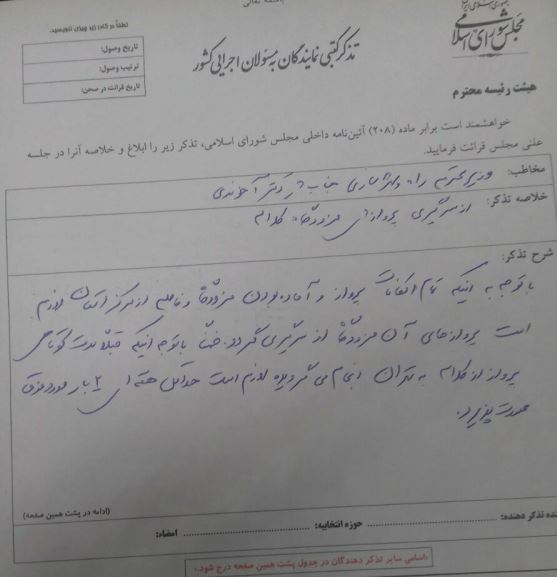 باسمه تعالی
مجلس شورای اسلامی
تذکر کتبی نمایندگان به مسئولان اجرایی کشور
لطفاً در کادر زیر چیزی ننویسید.
تاریخ وصول:
ترتیب وصول:
تاریخ قرائت در صحن:
هیئت رئیسه محترم
خواهشمند است برابر ماده (۲۰۸) آئین‌نامه داخلی مجلس شورای اسلامی، تذکر زیر را ابلاغ و خلاصه آنرا در جلسه
علنی مجلس قرائت فرمایید.
مخاطب: وزیر محترم راه و شهرسازی جناب دکتر آخوندی
خلاصه تذکر: ازسرگیری پروازهای فرودگاه کلاله
شرح تذکر:
با توجه به اینکه تمام امکانات پرواز و آماده بودن فرودگاه و فاصله از مرکز استان لازم
است پروازهای آن فرودگاه از سرگیری گردد. ضمناً با توجه اینکه قبلاً مدت کوتاهی
پرواز از کلاله به تهران انجام می گردیده لازم است حداقل هفته ای ۲ بار مورد فوق
صورت پذیرد.
(ادامه در پشت همین صفحه)
نده تذکر دهنده: حوزه انتخابیه: امضاء:
«اسامی سایر تذکر دهندگان در جدول پشت همین صفحه درج شود.»